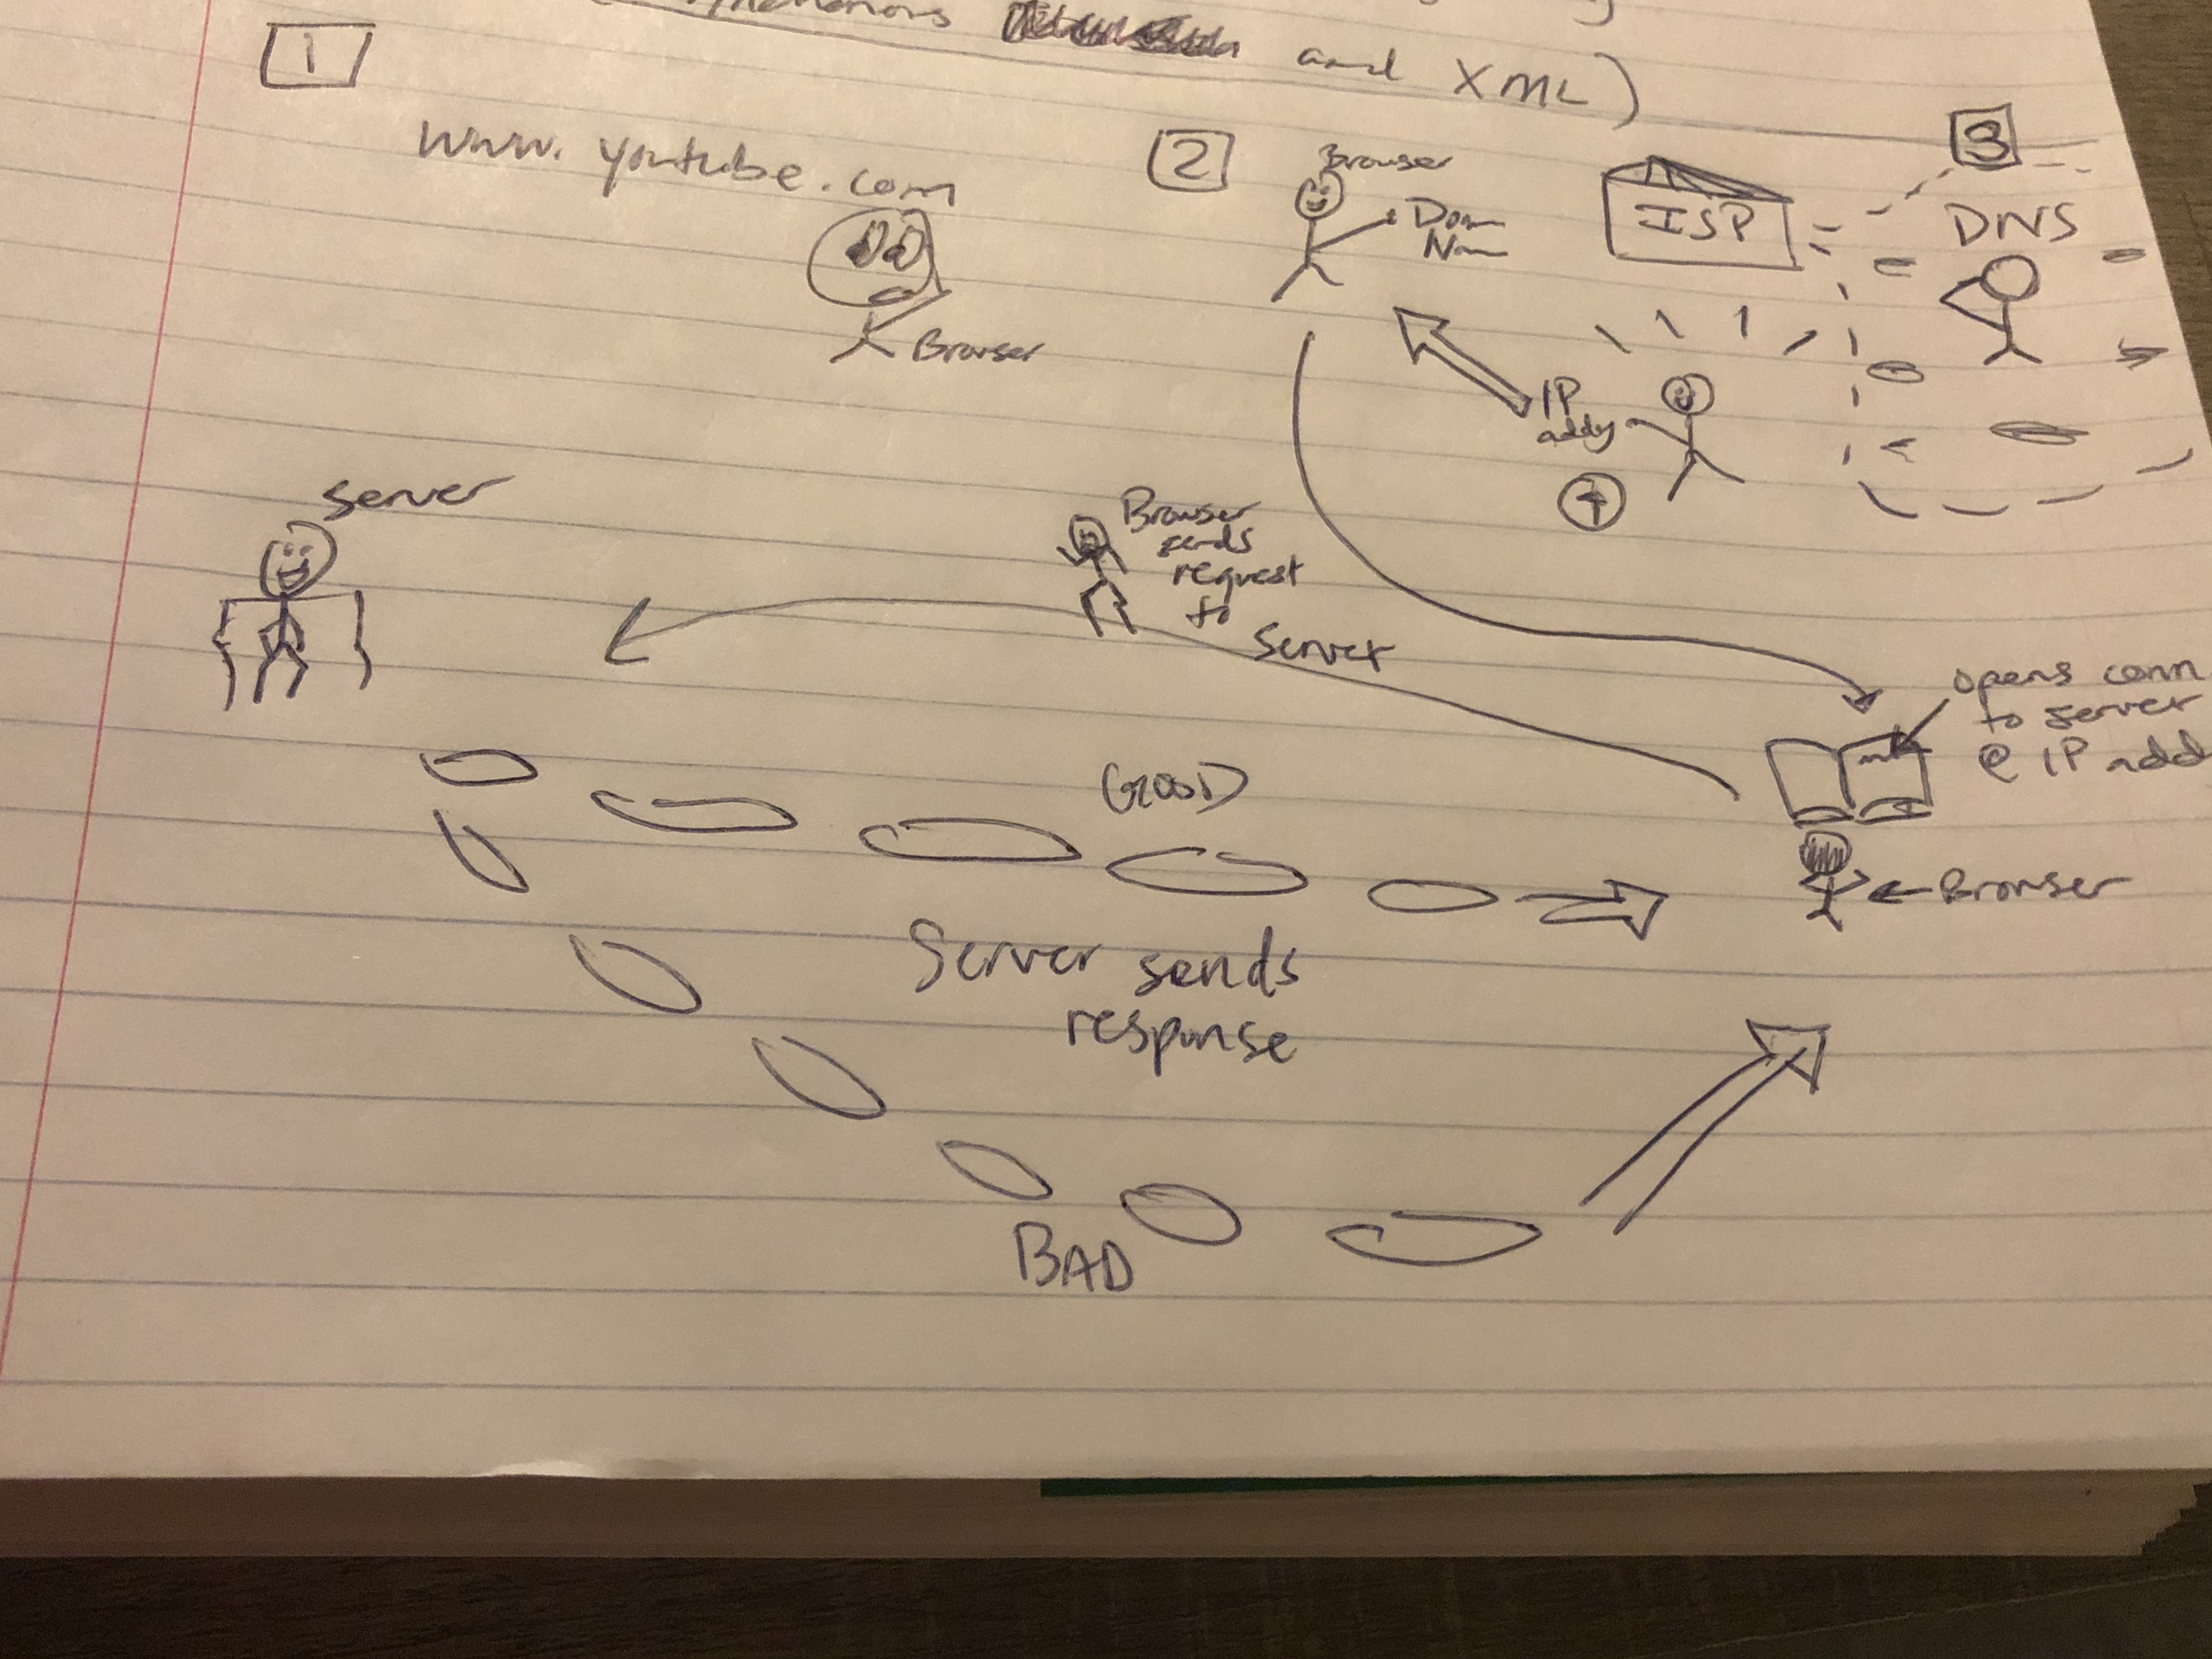 and XML)
1
www.youtube.com
Browser
2
Browser
Dom
Nam
ISP
3
DNS
IP
addy
Server
Browser
sends
request
to
Server
opens conn
to server
@ IP add
Browser
GOOD
Server sends
response
BAD